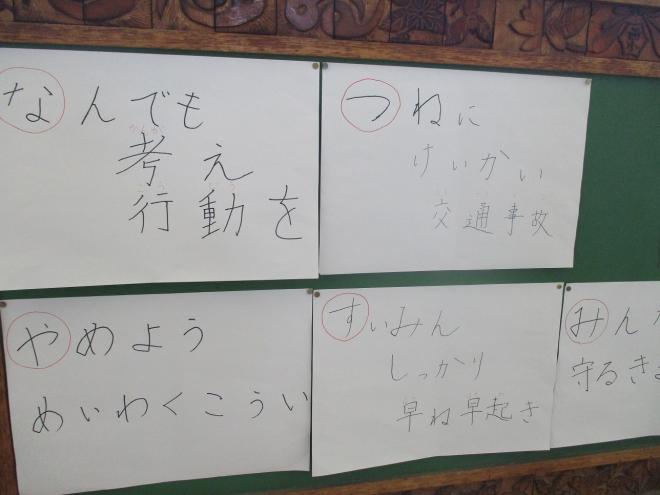 なんでも
考え
行動を
つねに
けいかい
交通事故
やめよう
めいわくこうい
すいみん
しっかり
早ね早起き
みん
守るき